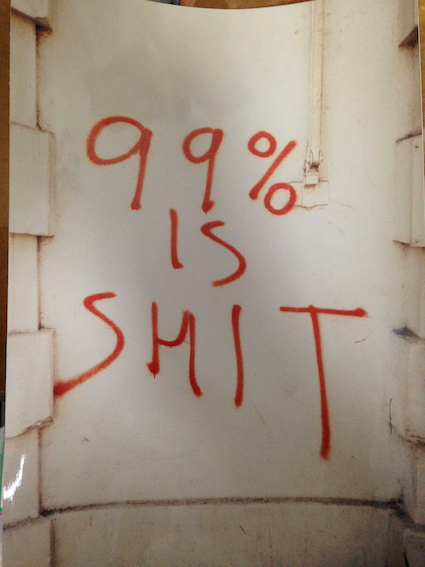 99%
IS
SHIT